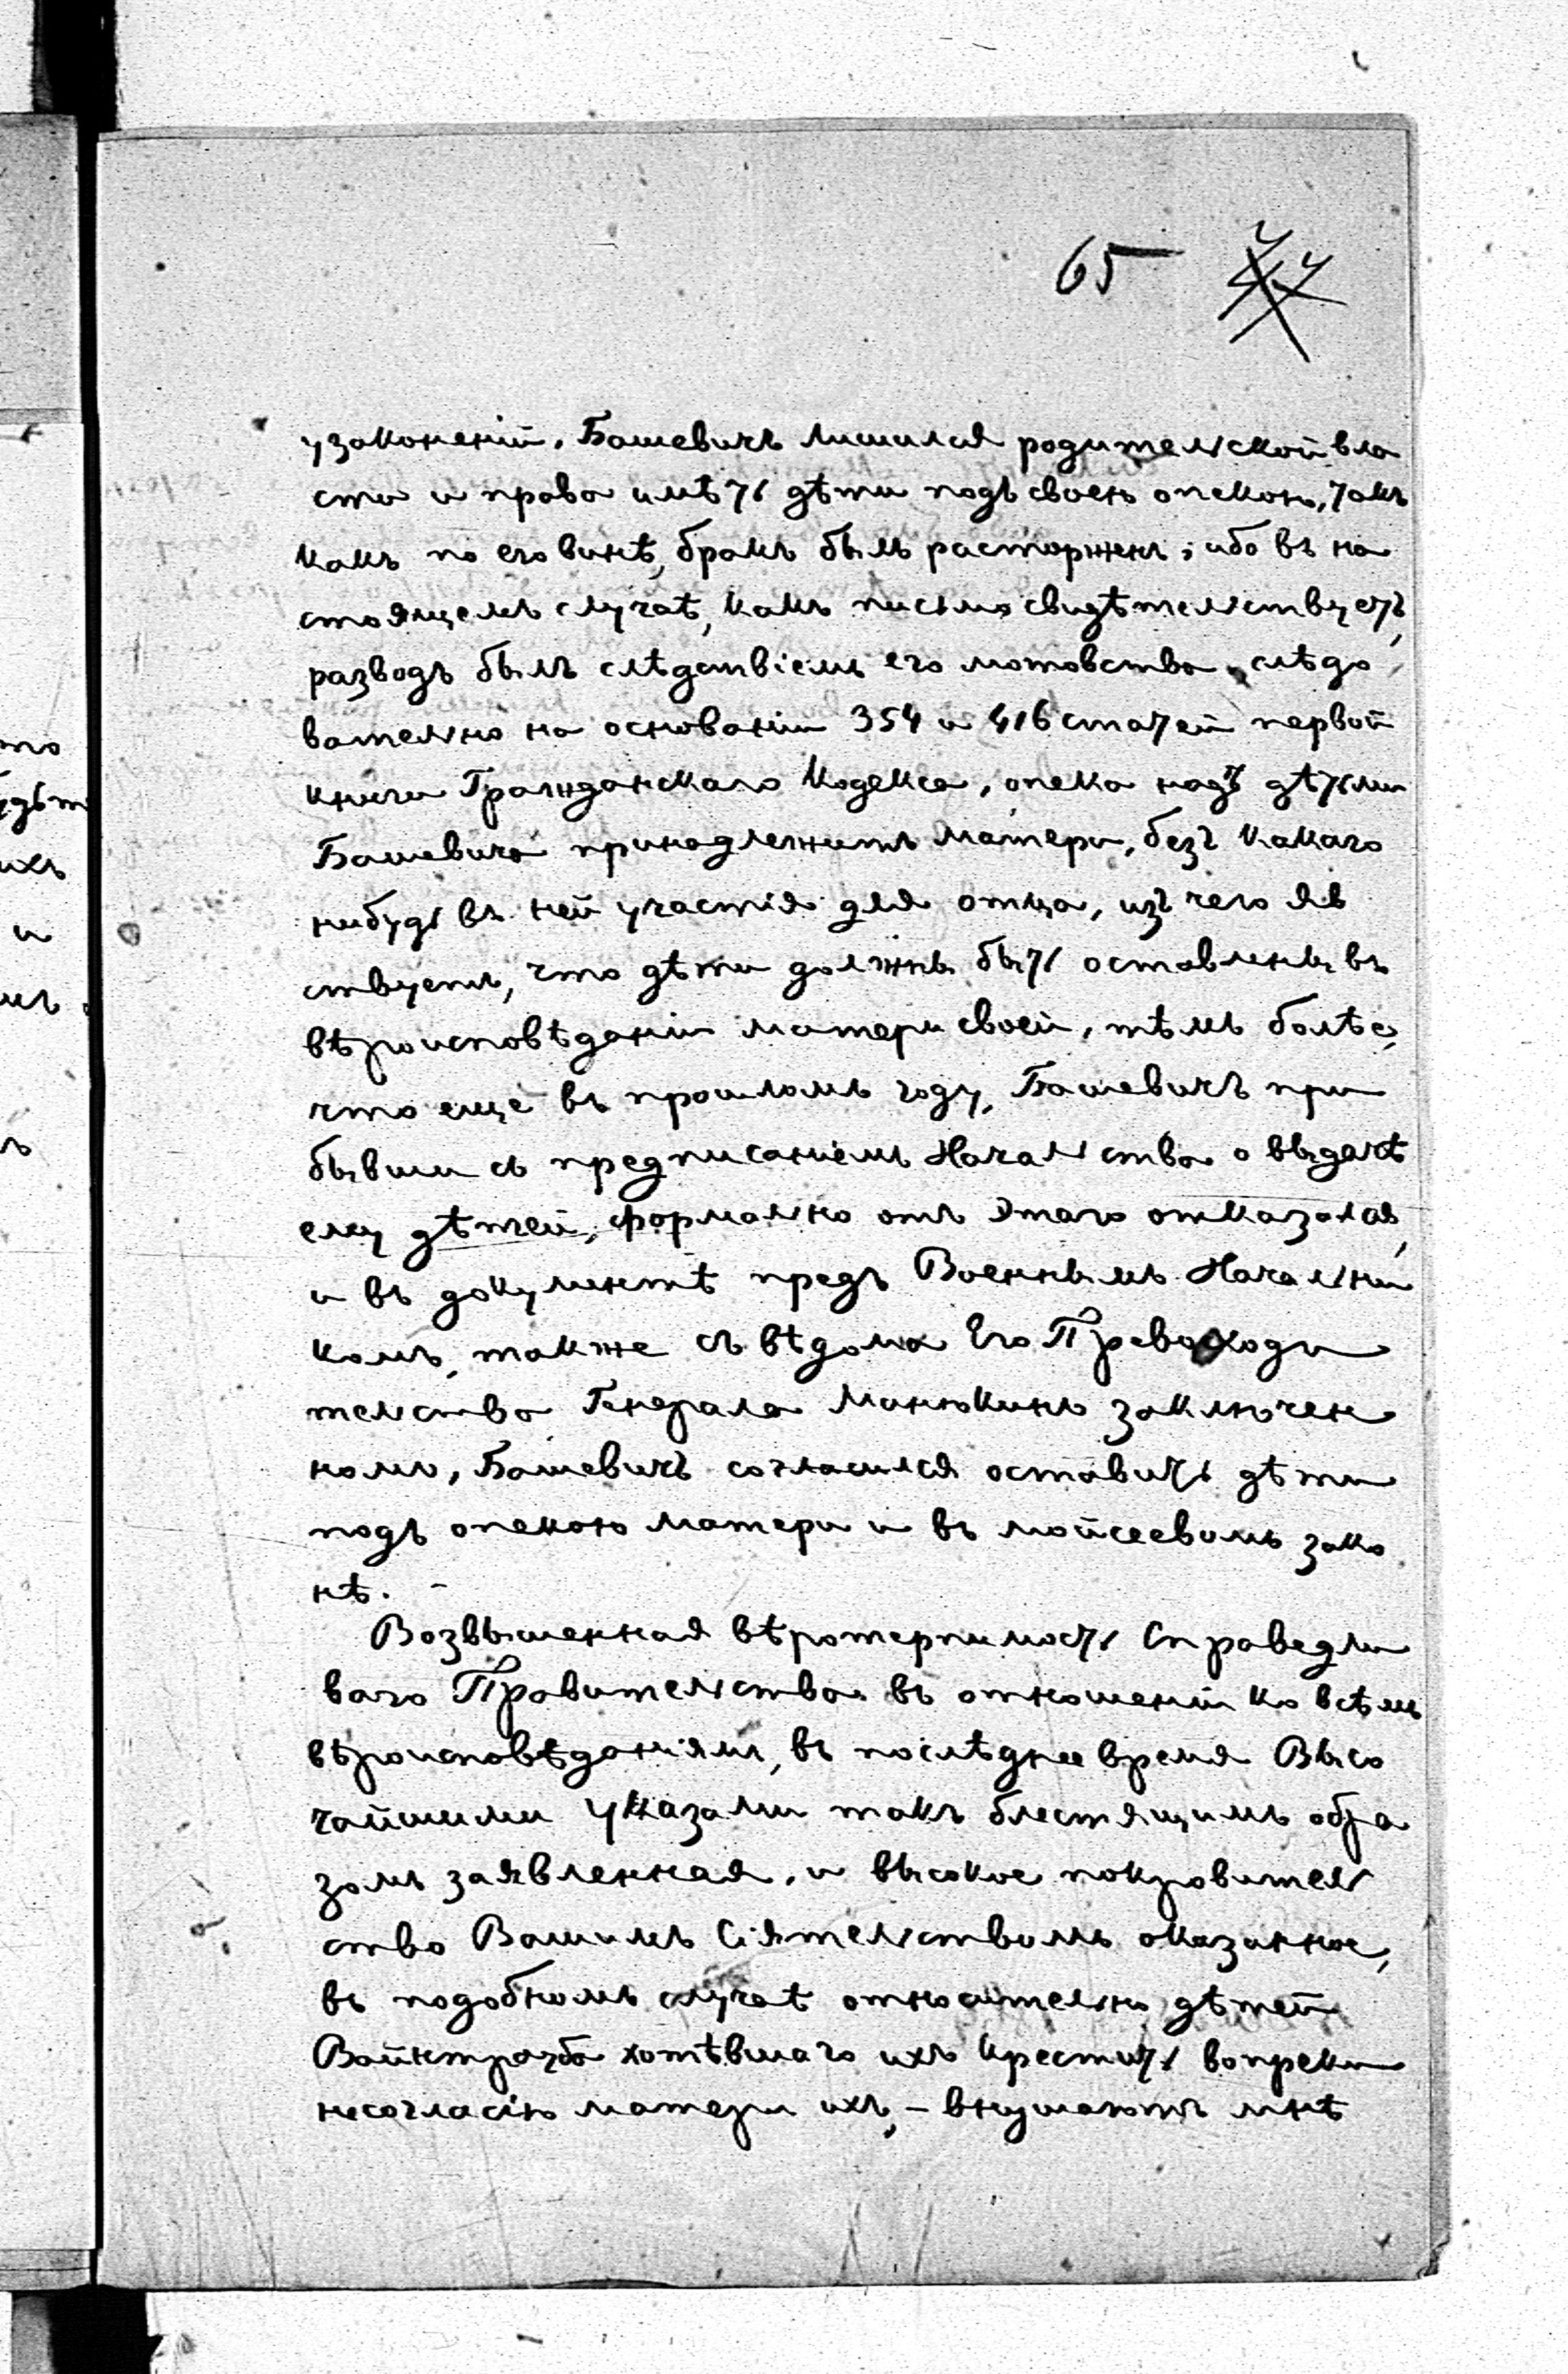 65
узаконеній, Башевичъ лишился родительской вла
сти и права имѣть дѣти подъ своею опекою, такъ
какъ по его винѣ, бракъ былъ расторженъ; ибо въ на
стоящемъ случаѣ, какъ письмо свидѣтельствуетъ,
разводъ былъ слѣдствіемъ его мотовства, слѣдо
вательно на основаніи 354 и 416 статей первой
книги Гражданскаго Кодекса, опека надъ дѣтьми
Башевича принадлежитъ матери, безъ какаго
нибудь въ ней участія для отца, изъ чего яв
ствуетъ, что дѣти должны быть оставлены въ
вѣроисповѣданіи матери своей, тѣмъ болѣе,
что еще въ прошломъ году, Башевичъ при
бывши съ предписаніемъ Начальства о выдачѣ
ему дѣтей, формально отъ этаго отказался,
и въ документѣ предъ Военнымъ Начальни
комъ, также съ вѣдома Его Превосходи
тельства Генерала Манюкинъ заключен
номъ, Башевичъ согласился оставить дѣти
подъ опекою матери и въ мойсеевомъ зако
нѣ. -
Возвышенная вѣротерпимость Справедли
ваго Правительства въ отношеній ко всѣмъ
вѣроисповѣданіямъ, въ послѣднее время Высо
чайшими указами такъ блестящимъ обра
зомъ заявленная, и высокое покровитель
ство Вашимъ Сіятельствомъ оказанное,
въ подобномъ случаѣ относительно дѣтей
Вайнтрауба хотѣвшаго ихъ крестить вопреки
несогласію матери ихъ, - внушаютъ мнѣ